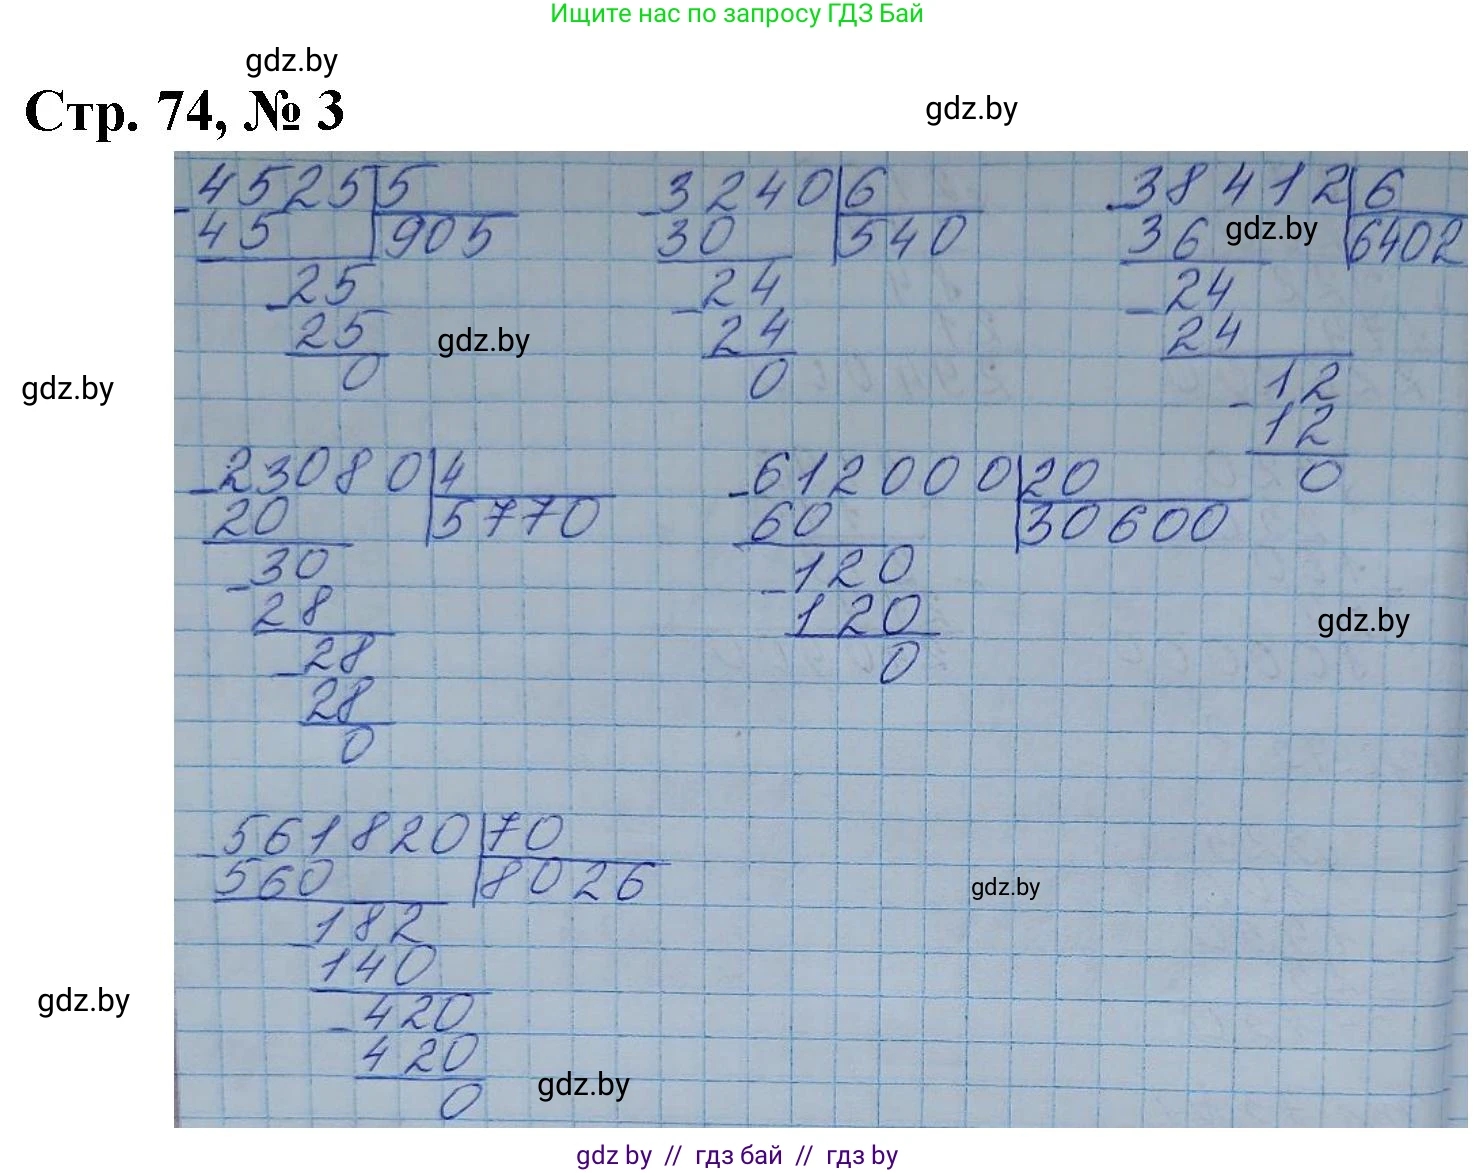 Ищите нас по запросу ГДЗ Бай
gdz.by
Стр. 74, № 3
gdz.by
4525 5
45 905
25
25
0
3240 6
30 540
24
24
0
38412 6
36 6402
gdz.by
24
24
12
12
0
gdz.by
gdz.by
23080 4
20 5770
30
28
28
28
0
612000 20
60 30600
120
120
0
gdz.by
561820 70
560 8026
182
140
420
420
0
gdz.by
gdz.by
gdz.by
gdz by // гдз бай // гдз by